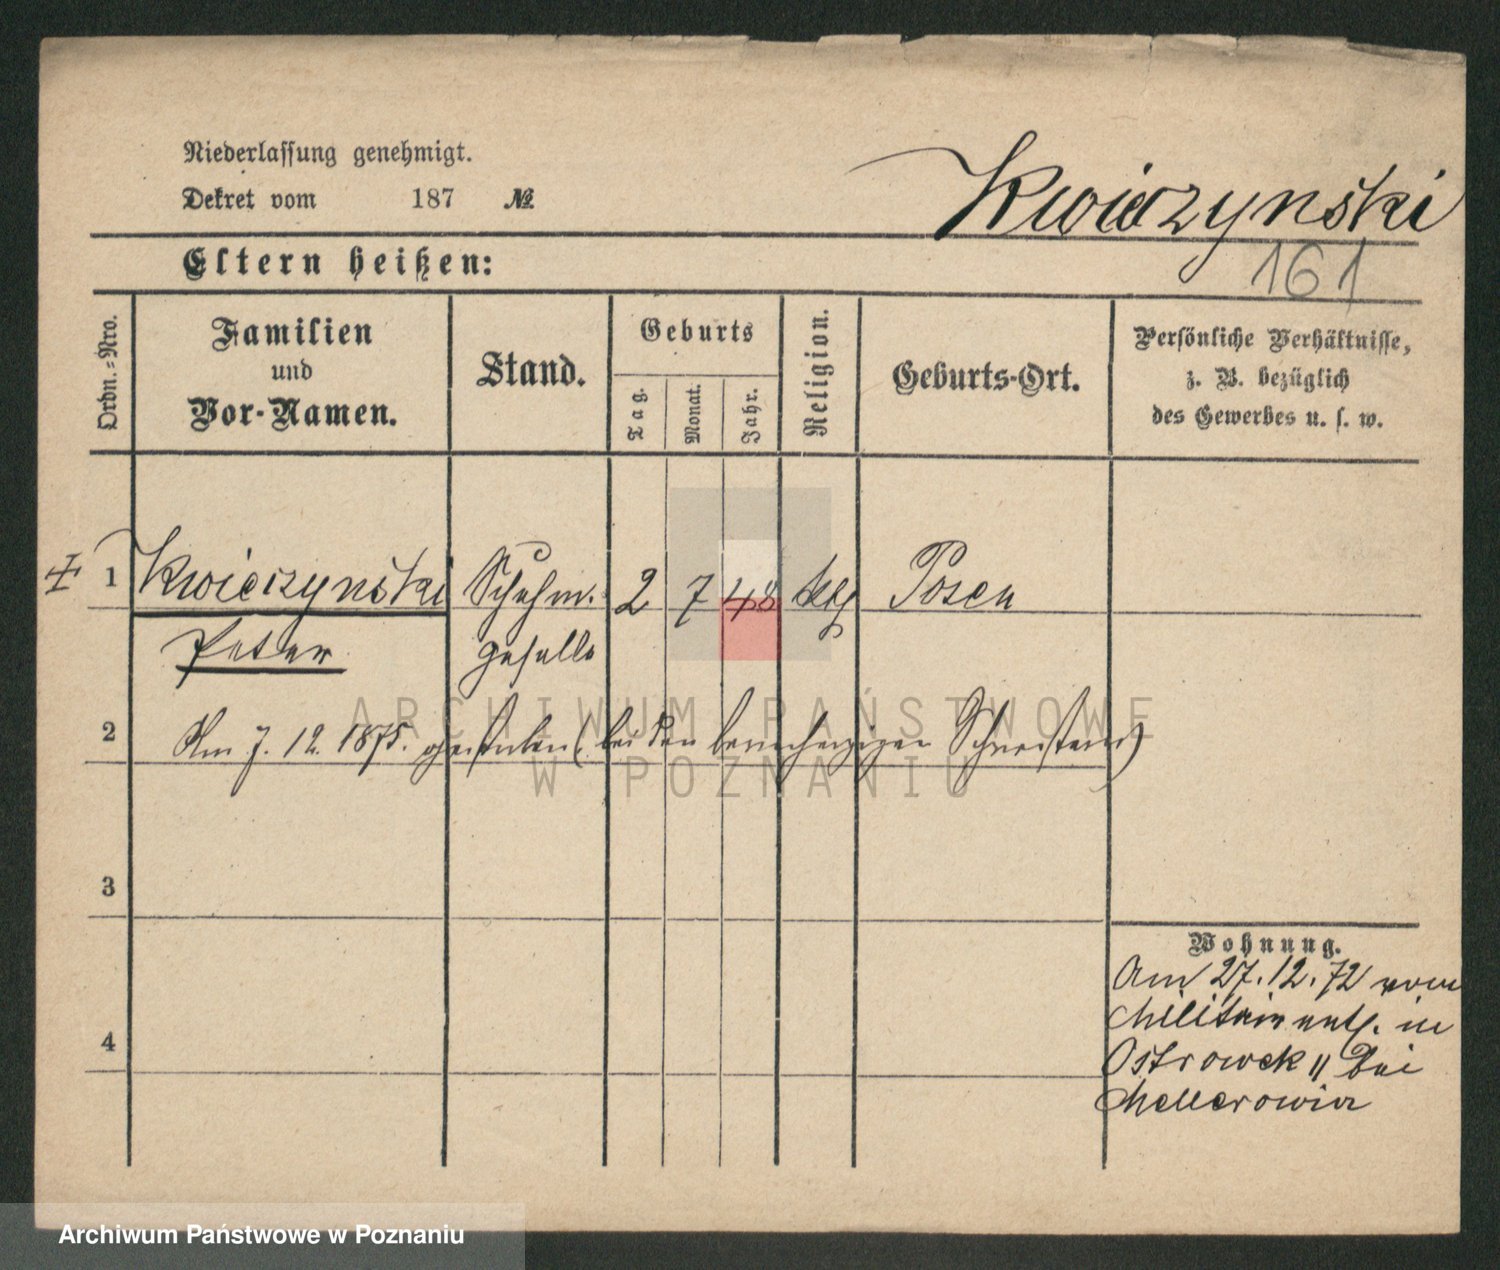 Niederlassung genehmigt.
Dekret vom 187 №
Kwieczynski
Eltern heißen:
161
Ordn.-Nro.
Familien
und
Vor-Namen.
Stand.
Geburts
Tag.
Monat.
Jahr.
Religion.
Geburts-Ort.
Persönliche Verhältnisse,
z. B. bezüglich
des Gewerbes u. s. w.
1 Kwieczynski Schuhm. 2 7 48 kth Posen
Peter geselle
ARCHIWUM PAŃSTWOWE
2 Am 7. 12. 1875. gestorben (bei den barmherzigen Schwestern)
W POZNANIU
3
Wohnung.
Am 27. 12. 72 vom
Militair entl. in
4
Ostrowek 11 bei
Archiwum Państwowe w Poznaniu